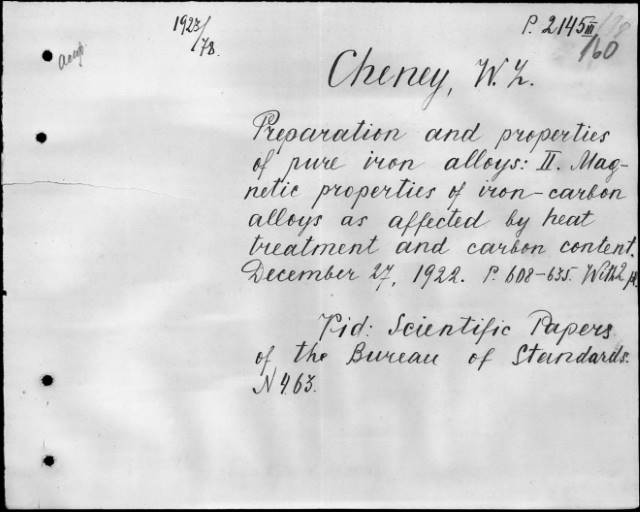 1923/78.
P. 2145 III
160
Cheney, W. L.
Preparation and properties
of pure iron alloys: II. Mag-
netic properties of iron-carbon
alloys as affected by heat
treatment and carbon content.
December 27, 1922. P. 608-635. With 2
Vid: Scientific Papers
of the Bureau of Standards.
N 463.